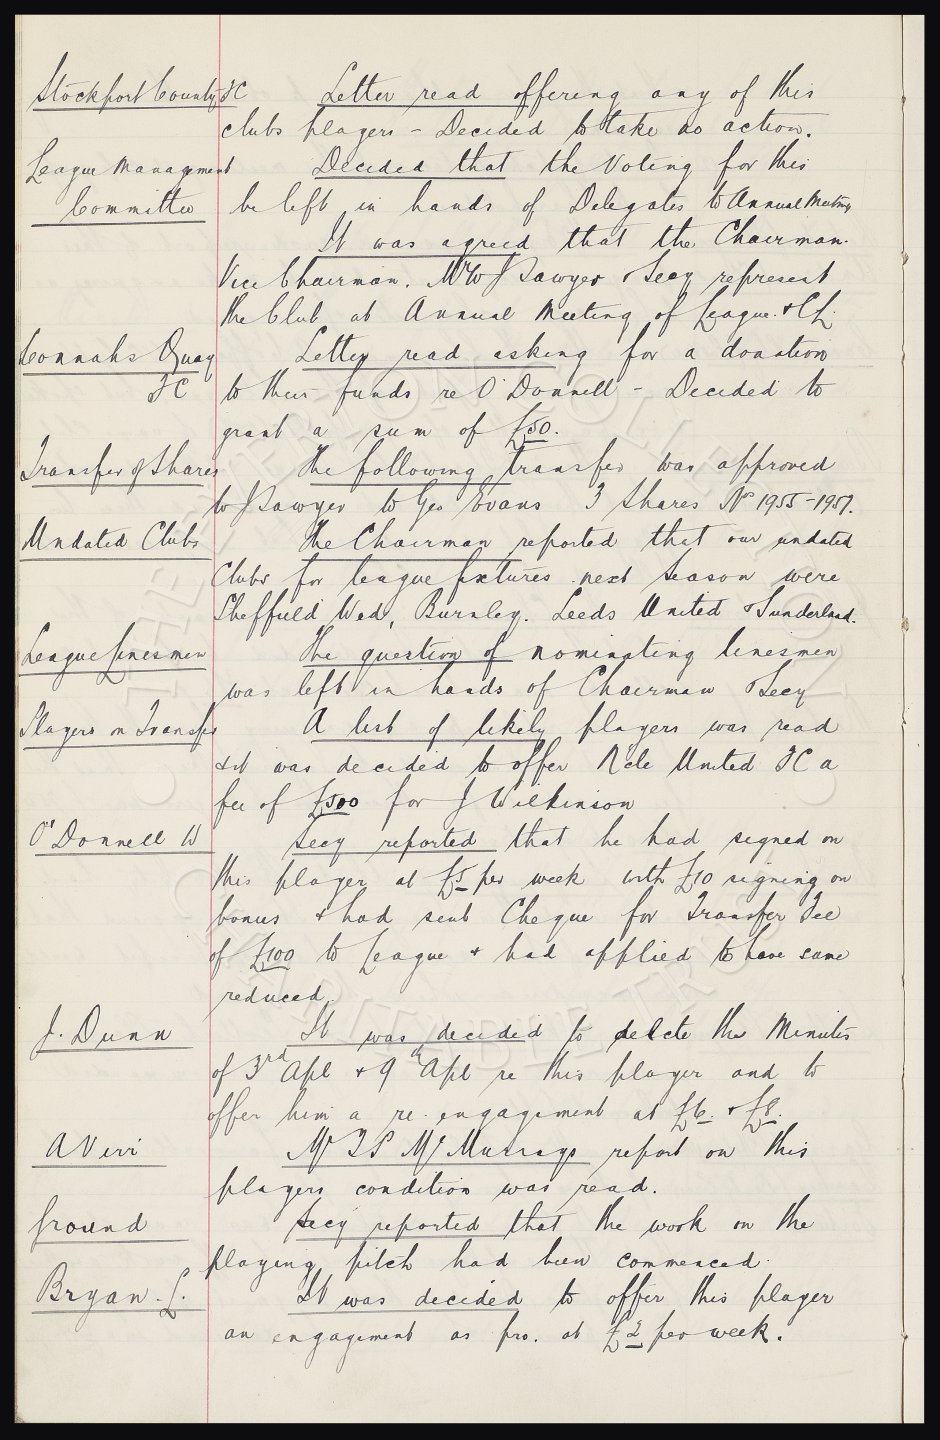 Stockport County FC Letter read offering any of this
clubs players - Decided to take no action.
League Managment Decided that the Voting for this
Committee be left in hands of Delegates to Annual Meeting
It was agreed that the Chairman.
Vice Chairman. Mr W J Sawyer & Secy represent
the Club at Annual Meeting of League. & CL.
Connahs Quay Letter read asking for a donation
FC to their funds re O'Donnell - Decided to
grant a sum of £50.
Transfer of Shares The following transfer was approved
W J Sawyer to Geo Evans 3 Shares No 1955-1957.
Undated Clubs The Chairman reported that our undated
Clubs for league fixtures next season were
Sheffield Wed, Burnley. Leeds United & Sunderland.
League Linesmen The question of nominating linesmen
was left in hands of Chairman & Secy
Players on Transfer A list of likely players was read
& it was decided to offer N'cle United FC a
fee of £500 for J Wilkinson
O'Donnell W Secy reported that he had signed on
this player at £5 per week with £10 signing on
bonus & had sent Cheque for Transfer Fee
of £100 to League & had applied to have same
reduced.
J. Dunn It was decided to delete the Minutes
of 3rd Apl & 9th Apl re this player and to
offer him a re-engagement at £6. & £8.
A Virr Mr T P McMurrays report on this
players condition was read.
Ground Secy reported that the work on the
playing pitch had been commenced.
Bryan. L. It was decided to offer this player
an engagement as pro. at £2 per week.